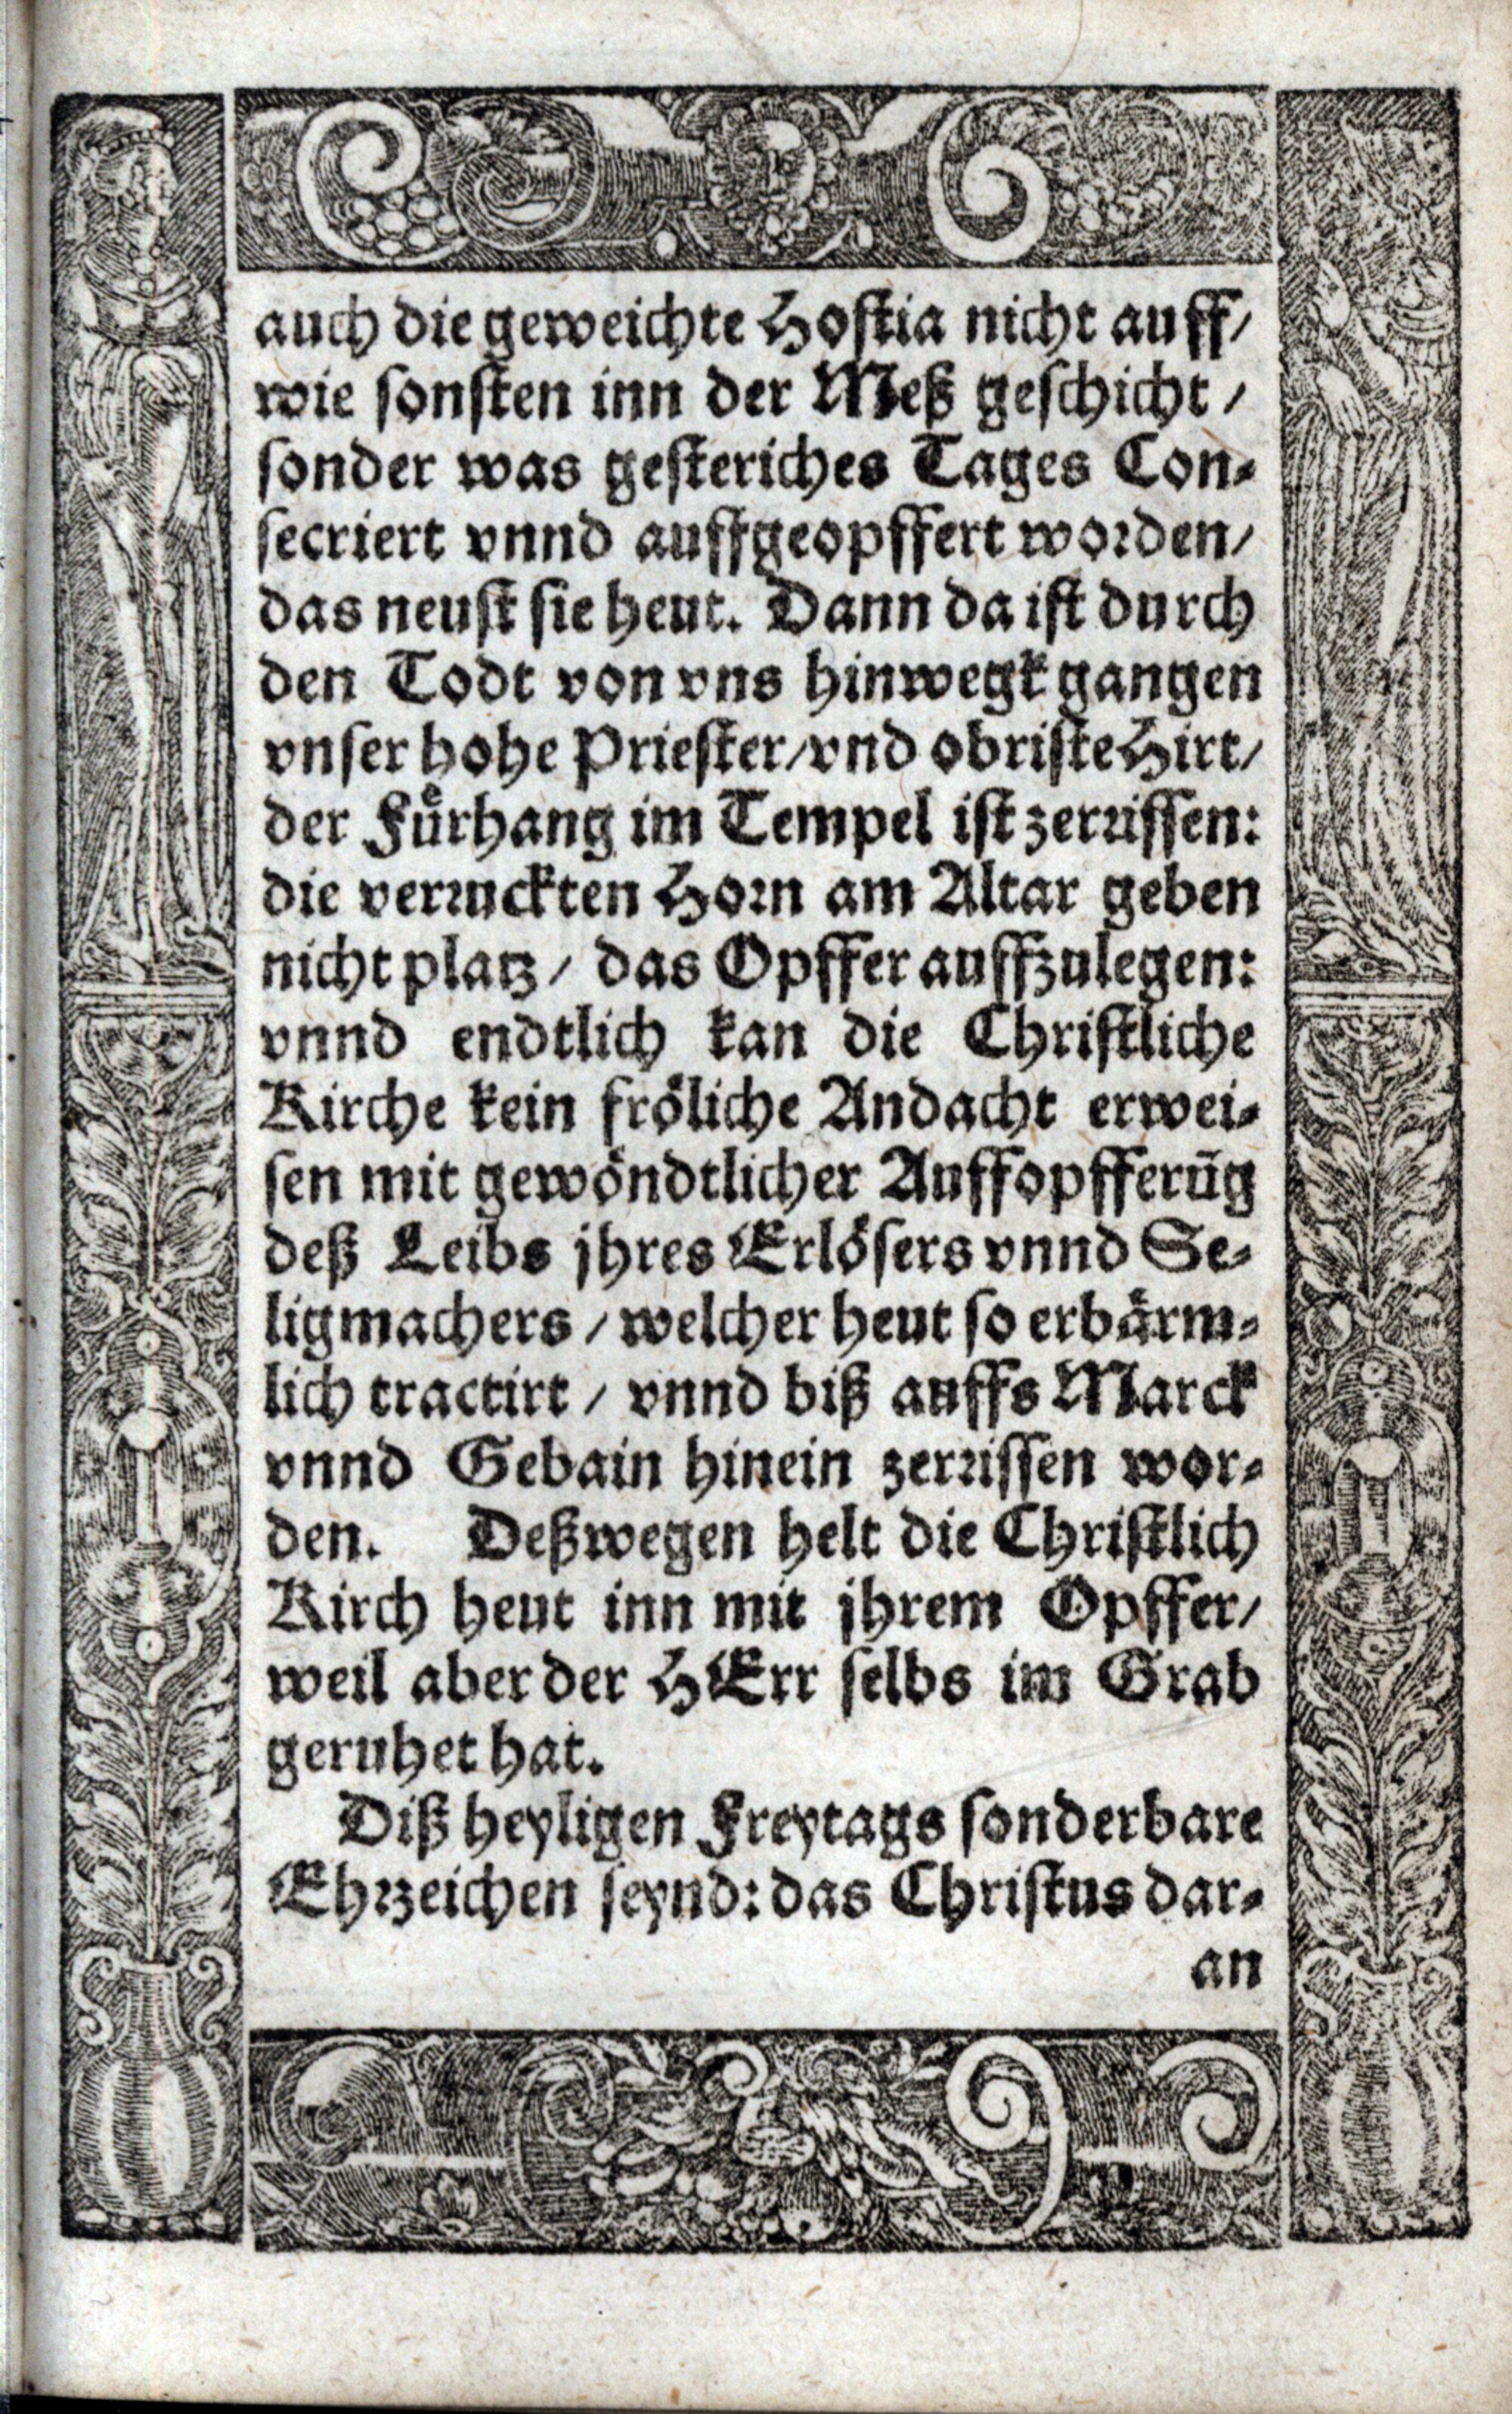 auch die geweichte Hostia nicht auff/
wie sonsten inn der Meß geschicht/
sonder was gesteriches Tages Con-
secriert vnnd auffgeopffert worden/
das neust sie heut. Dann da ist durch
den Todt von vns hinwegk gangen
vnser hohe Priester/vnd obriste Hirt/
der Fürhang im Tempel ist zerrissen:
die verruckten Horn am Altar geben
nicht platz/ das Opffer auffzulegen:
vnnd endtlich kan die Christliche
Kirche kein fröliche Andacht erwei-
sen mit gewöndtlicher Auffopfferūg
deß Leibs jhres Erlösers vnnd Se-
ligmachers/ welcher heut so erbärm-
lich tractirt/ vnnd biß auffs Marck
vnnd Gebain hinein zerrissen wor-
den. Deßwegen helt die Christlich
Kirch heut inn mit jhrem Opffer/
weil aber der HErr selbs im Grab
geruhet hat.
Diß heyligen Freytags sonderbare
Ehrzeichen seynd: das Christus dar-
an